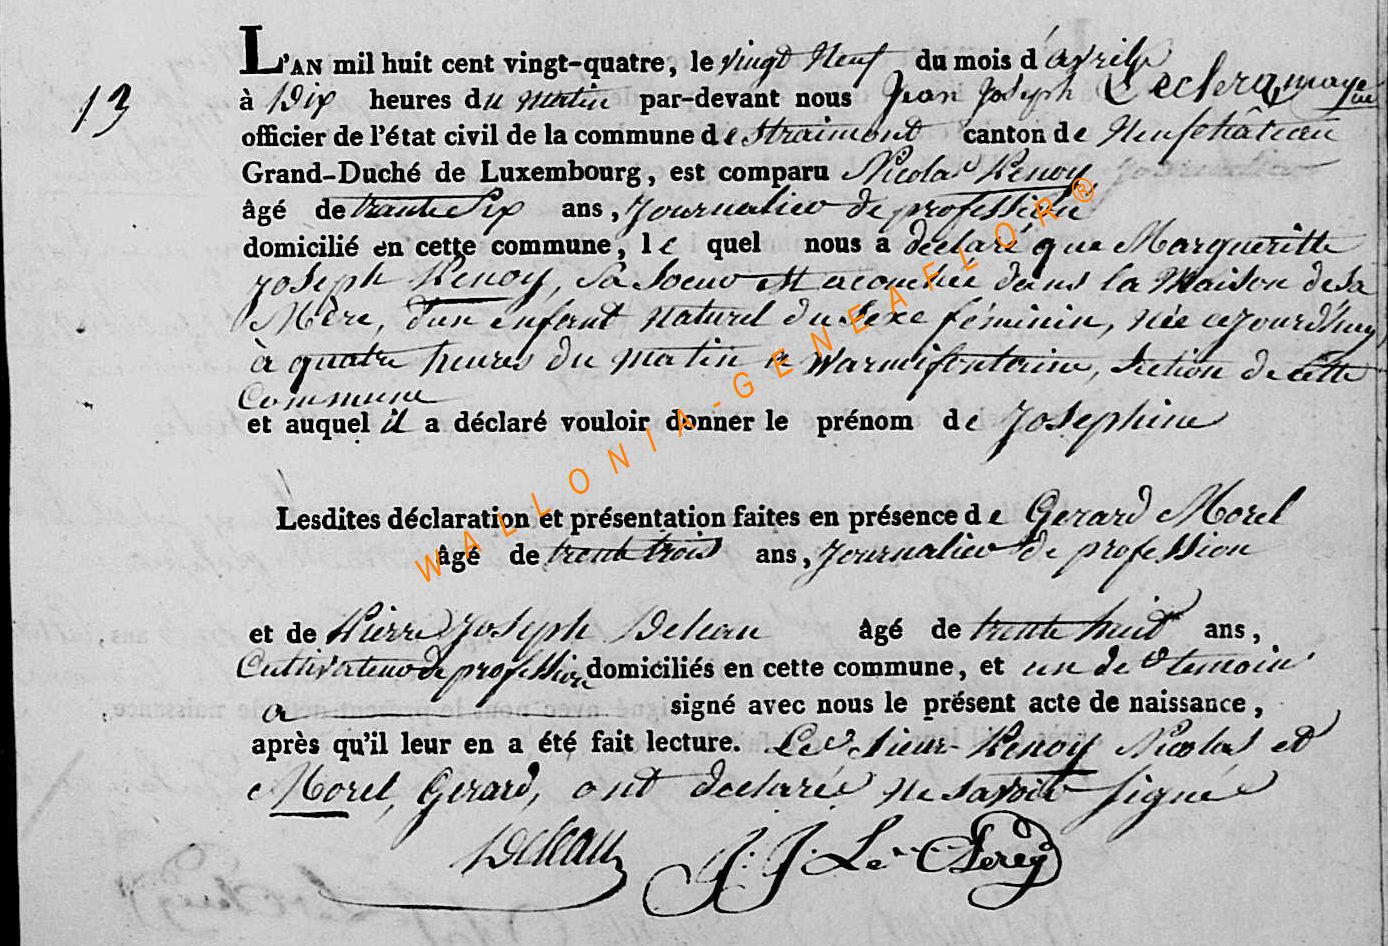 L'AN mil huit cent vingt-quatre, le vingt neuf du mois d'avril
13
à Dix heures du matin par-devant nous Jean Joseph Leclercq mayeur
officier de l'état civil de la commune de Straimont canton de Neufchâteau
Grand-Duché de Luxembourg, est comparu Nicolas Renoy
âgé de trante Six ans, Journalier de profession
domicilié en cette commune, le quel nous a declaré que Margueritte
Joseph Renoy, Sa Soeur est acouchée dans la Maison de sa
Mère, d'un enfant naturel du Sexe féminin, née cejourd'huy
à quatre heures du matin a Warmifontaine, Section de cette
Commune
et auquel il a déclaré vouloir donner le prénom de Josephine
Lesdites déclaration et présentation faites en présence de Gerard Morel
âgé de trente trois ans, Journalier de profession
et de Pierre Joseph Deleau âgé de trente huit ans,
Cultivateur de profession domiciliés en cette commune, et un des temoins
a signé avec nous le présent acte de naissance,
après qu'il leur en a été fait lecture. Les Sieur Renoy Nicolas et
Morel, Gerard, ont declarée ne Savoir Signée
Deleau J. J. Le Clercq
WALLONIA-GENEAFLOR®